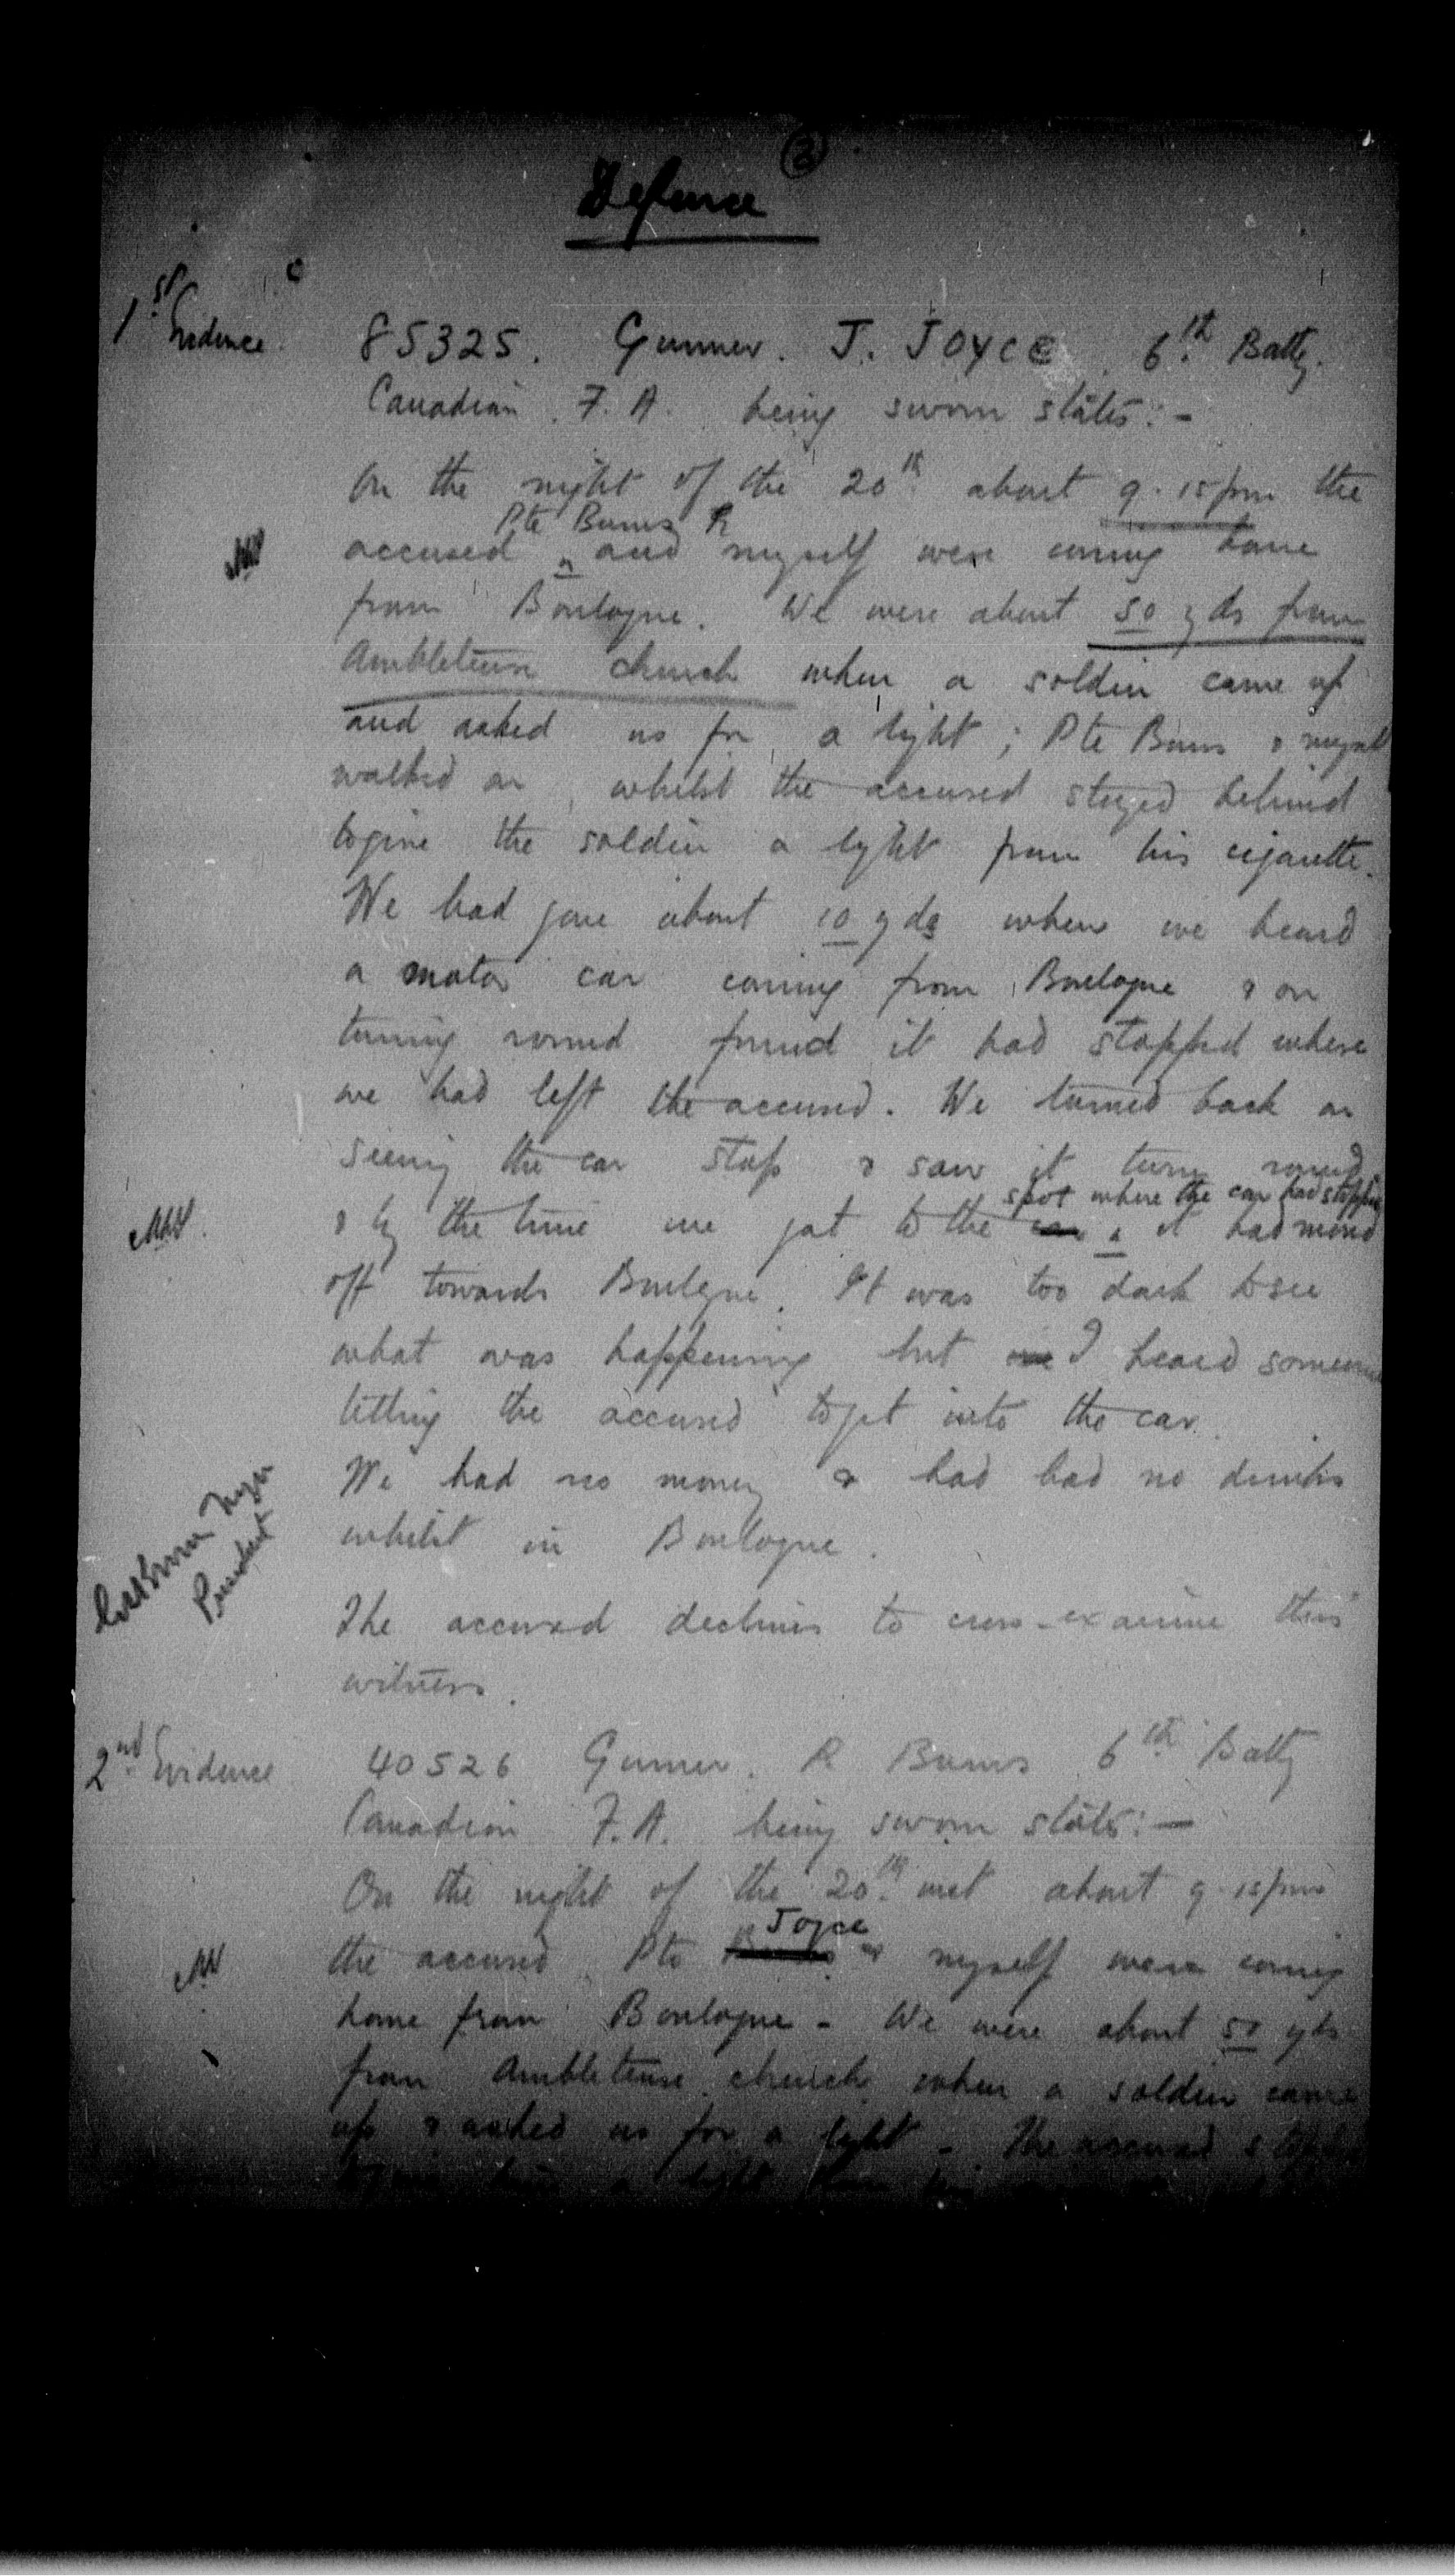 (2)
Defence
1st Evidence
85325. Gunner. J. JOYCE. 6th Batty.
Canadian. F. A. being sworn states:-
On the night of the 20th about 9.15 pm the
Pte Burns R
accused ^ and myself were coming home
from Boulogne. We were about 50 yds from
Ambleteuse church when a soldier came up
and asked us for a light; Pte Burns & myself
walked on, whilst the accused stayed behind
to give the soldier a light from his cigarette.
We had gone about 10 yds when we heard
a motor car coming from Boulogne & on
turning round found it had stopped where
we had left the accused. We turned back on
seeing the car stop & saw it turn round
spot where the car had stopped
& by the time we got to the car ^ it had moved
off towards Boulogne. It was too dark to see
what was happening but we I heard someone
telling the accused to get into the car.
We had no money & had had no drinks
whilst in Boulogne.
President
The accused declines to cross-examine this
witness.
2nd Evidence
40526 Gunner. R Burns 6th Batty
Canadian F.A. being sworn states:-
On the night of the 20th inst about 9.15 pm
Joyce
the accused Pte Burns & myself were coming
home from Boulogne - We were about 50 yds
from Ambleteuse church when a soldier came
up & asked us for a light - The accused
a light